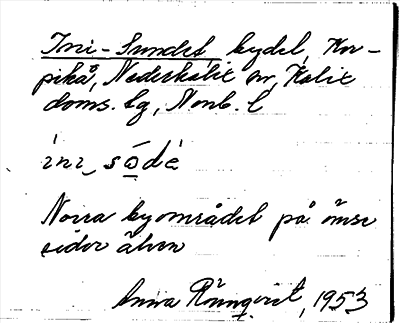 Ini-Sundet bydel, Kor-
pikå, Nederkalix sn, Kalix
doms. lg, Norrb. l
ini sǫ̀dè
Norra byområdet på ömse
sidor älven
Anna Rönnqvist, 1953